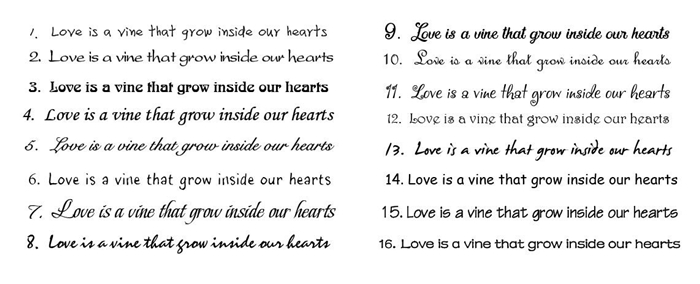 1. Love is a vine that grow inside our hearts
2. Love is a vine that grow inside our hearts
3. Love is a vine that grow inside our hearts
4. Love is a vine that grow inside our hearts
5. Love is a vine that grow inside our hearts
6. Love is a vine that grow inside our hearts
7. Love is a vine that grow inside our hearts
8. Love is a vine that grow inside our hearts
9. Love is a vine that grow inside our hearts
10. Love is a vine that grow inside our hearts
11. Love is a vine that grow inside our hearts
12. Love is a vine that grow inside our hearts
13. Love is a vine that grow inside our hearts
14. Love is a vine that grow inside our hearts
15. Love is a vine that grow inside our hearts
16. Love is a vine that grow inside our hearts